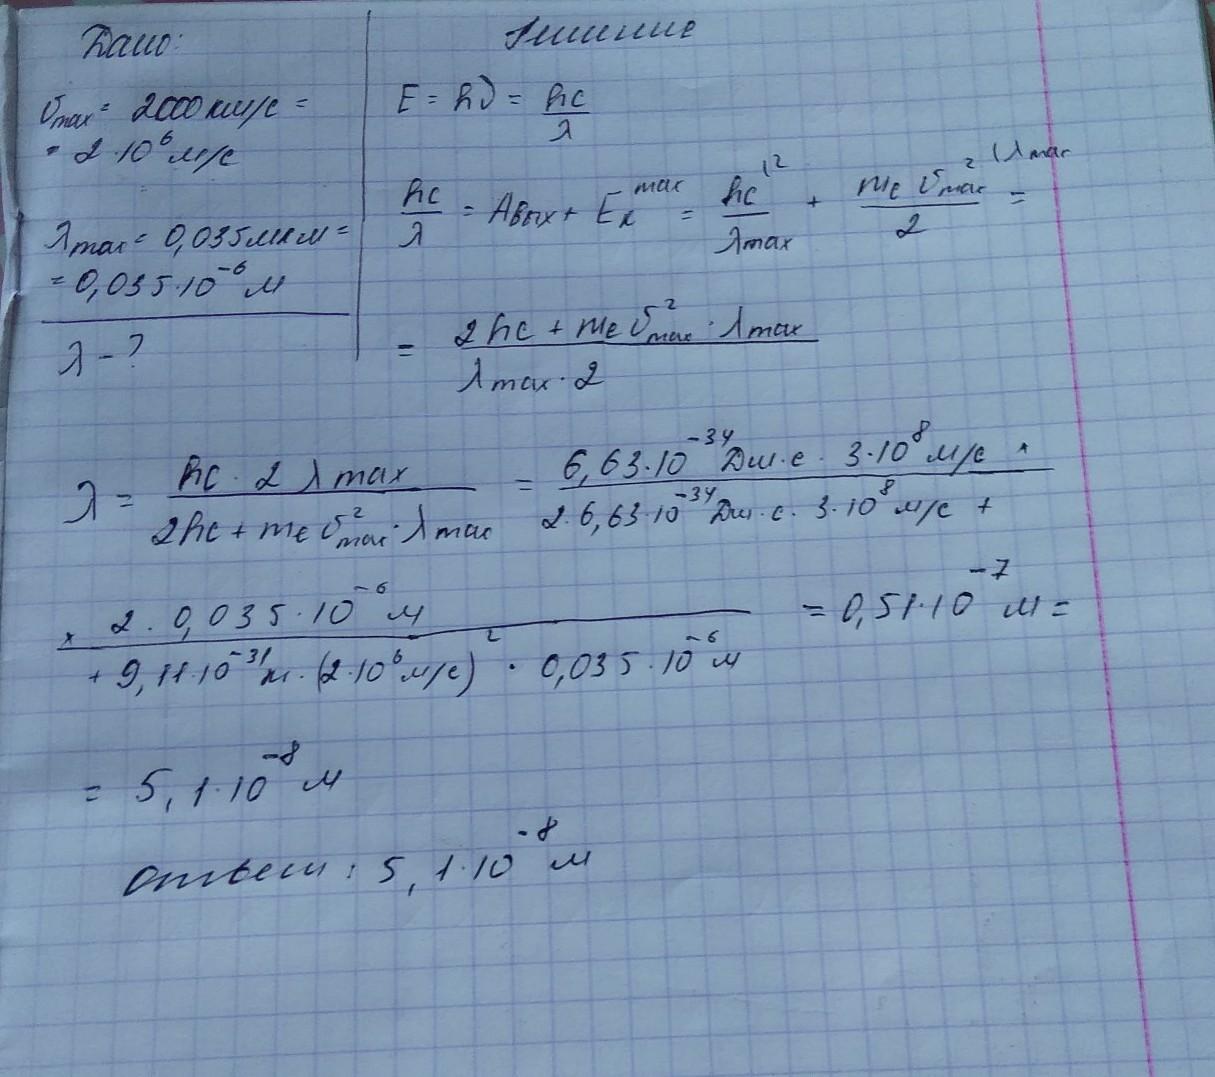 Дано:
υmax = 2000 км/с =
= 2·10⁶ м/с
λmax = 0,035 мкм =
= 0,035·10⁻⁶ м
λ - ?
Решение
E = hν = hc/λ
hc/λ = Aвых + Eк^max = hc^(12/λmax + meυ²max^(λmax/2 =
= (2hc + meυ²max · λmax)/(λmax · 2)
λ = (hc · 2λmax)/(2hc + meυ²max · λmax) = (6,63·10⁻³⁴ Дж·с · 3·10⁸ м/с ×)/(2·6,63·10⁻³⁴ Дж·с · 3·10⁸ м/с +)
(× 2 · 0,035·10⁻⁶ м)/(+ 9,11·10⁻³¹ кг · (2·10⁶ м/с)² · 0,035·10⁻⁶ м) = 0,51·10⁻⁷ м =
= 5,1·10⁻⁸ м
Ответ: 5,1·10⁻⁸ м